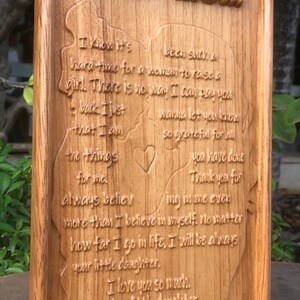 I know it's been such a
hard time for a woman to raise a
girl. There is no way I can pay you
back I just wanna let you know
that I am so grateful for all
the things you have done
for me! Thank you for
always believ ing in me even
more than I believe in myself. no matter
how far I go in life, I will be always
your little daughter.
I love you so much.
little daughter